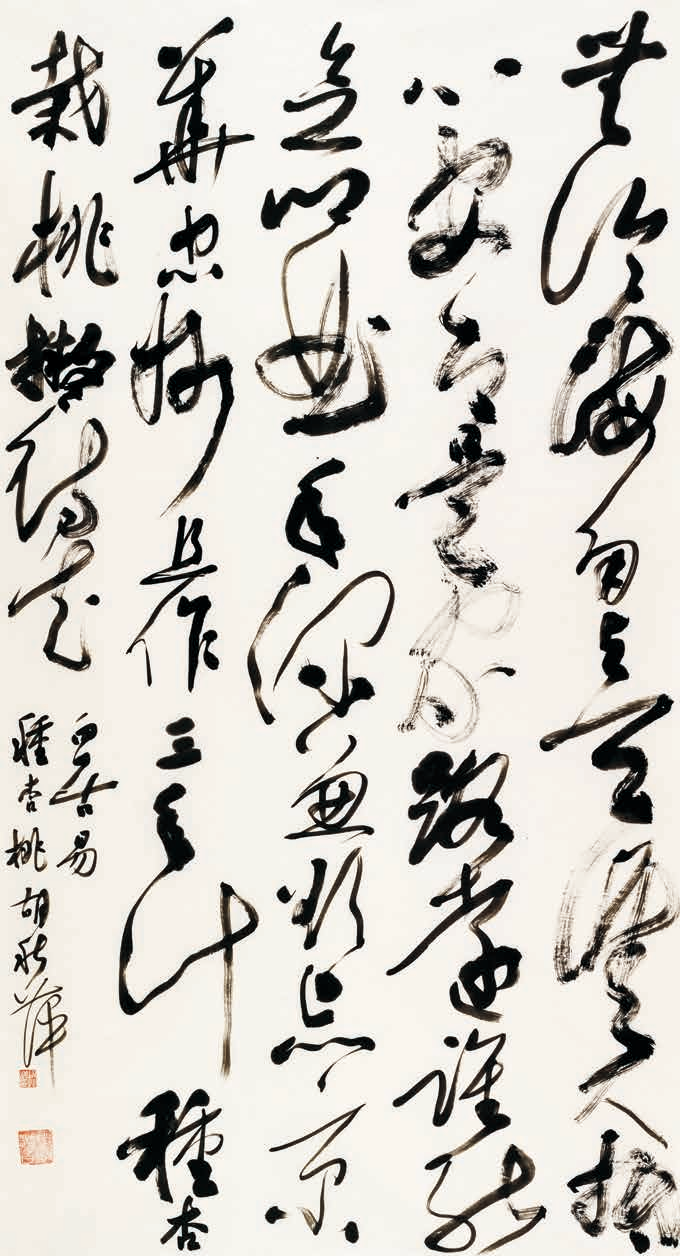 無論海角与天涯大抵
心安即是家路遠誰能
念鄉曲年深兼欲忘京
華忠州且作三年計種杏
栽桃擬待花
白居易
種杏桃胡秋萍